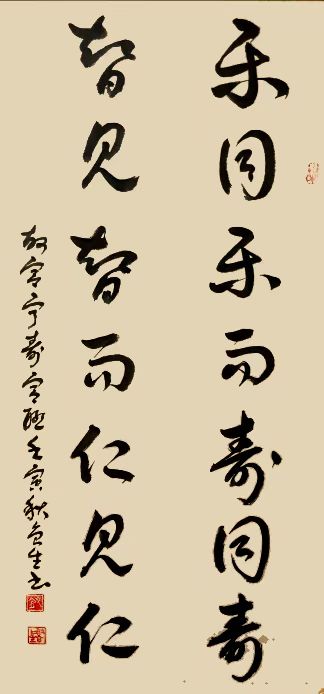 乐同乐而寿同寿
智见智而仁见仁
故宫宁寿宫联壬寅秋生书